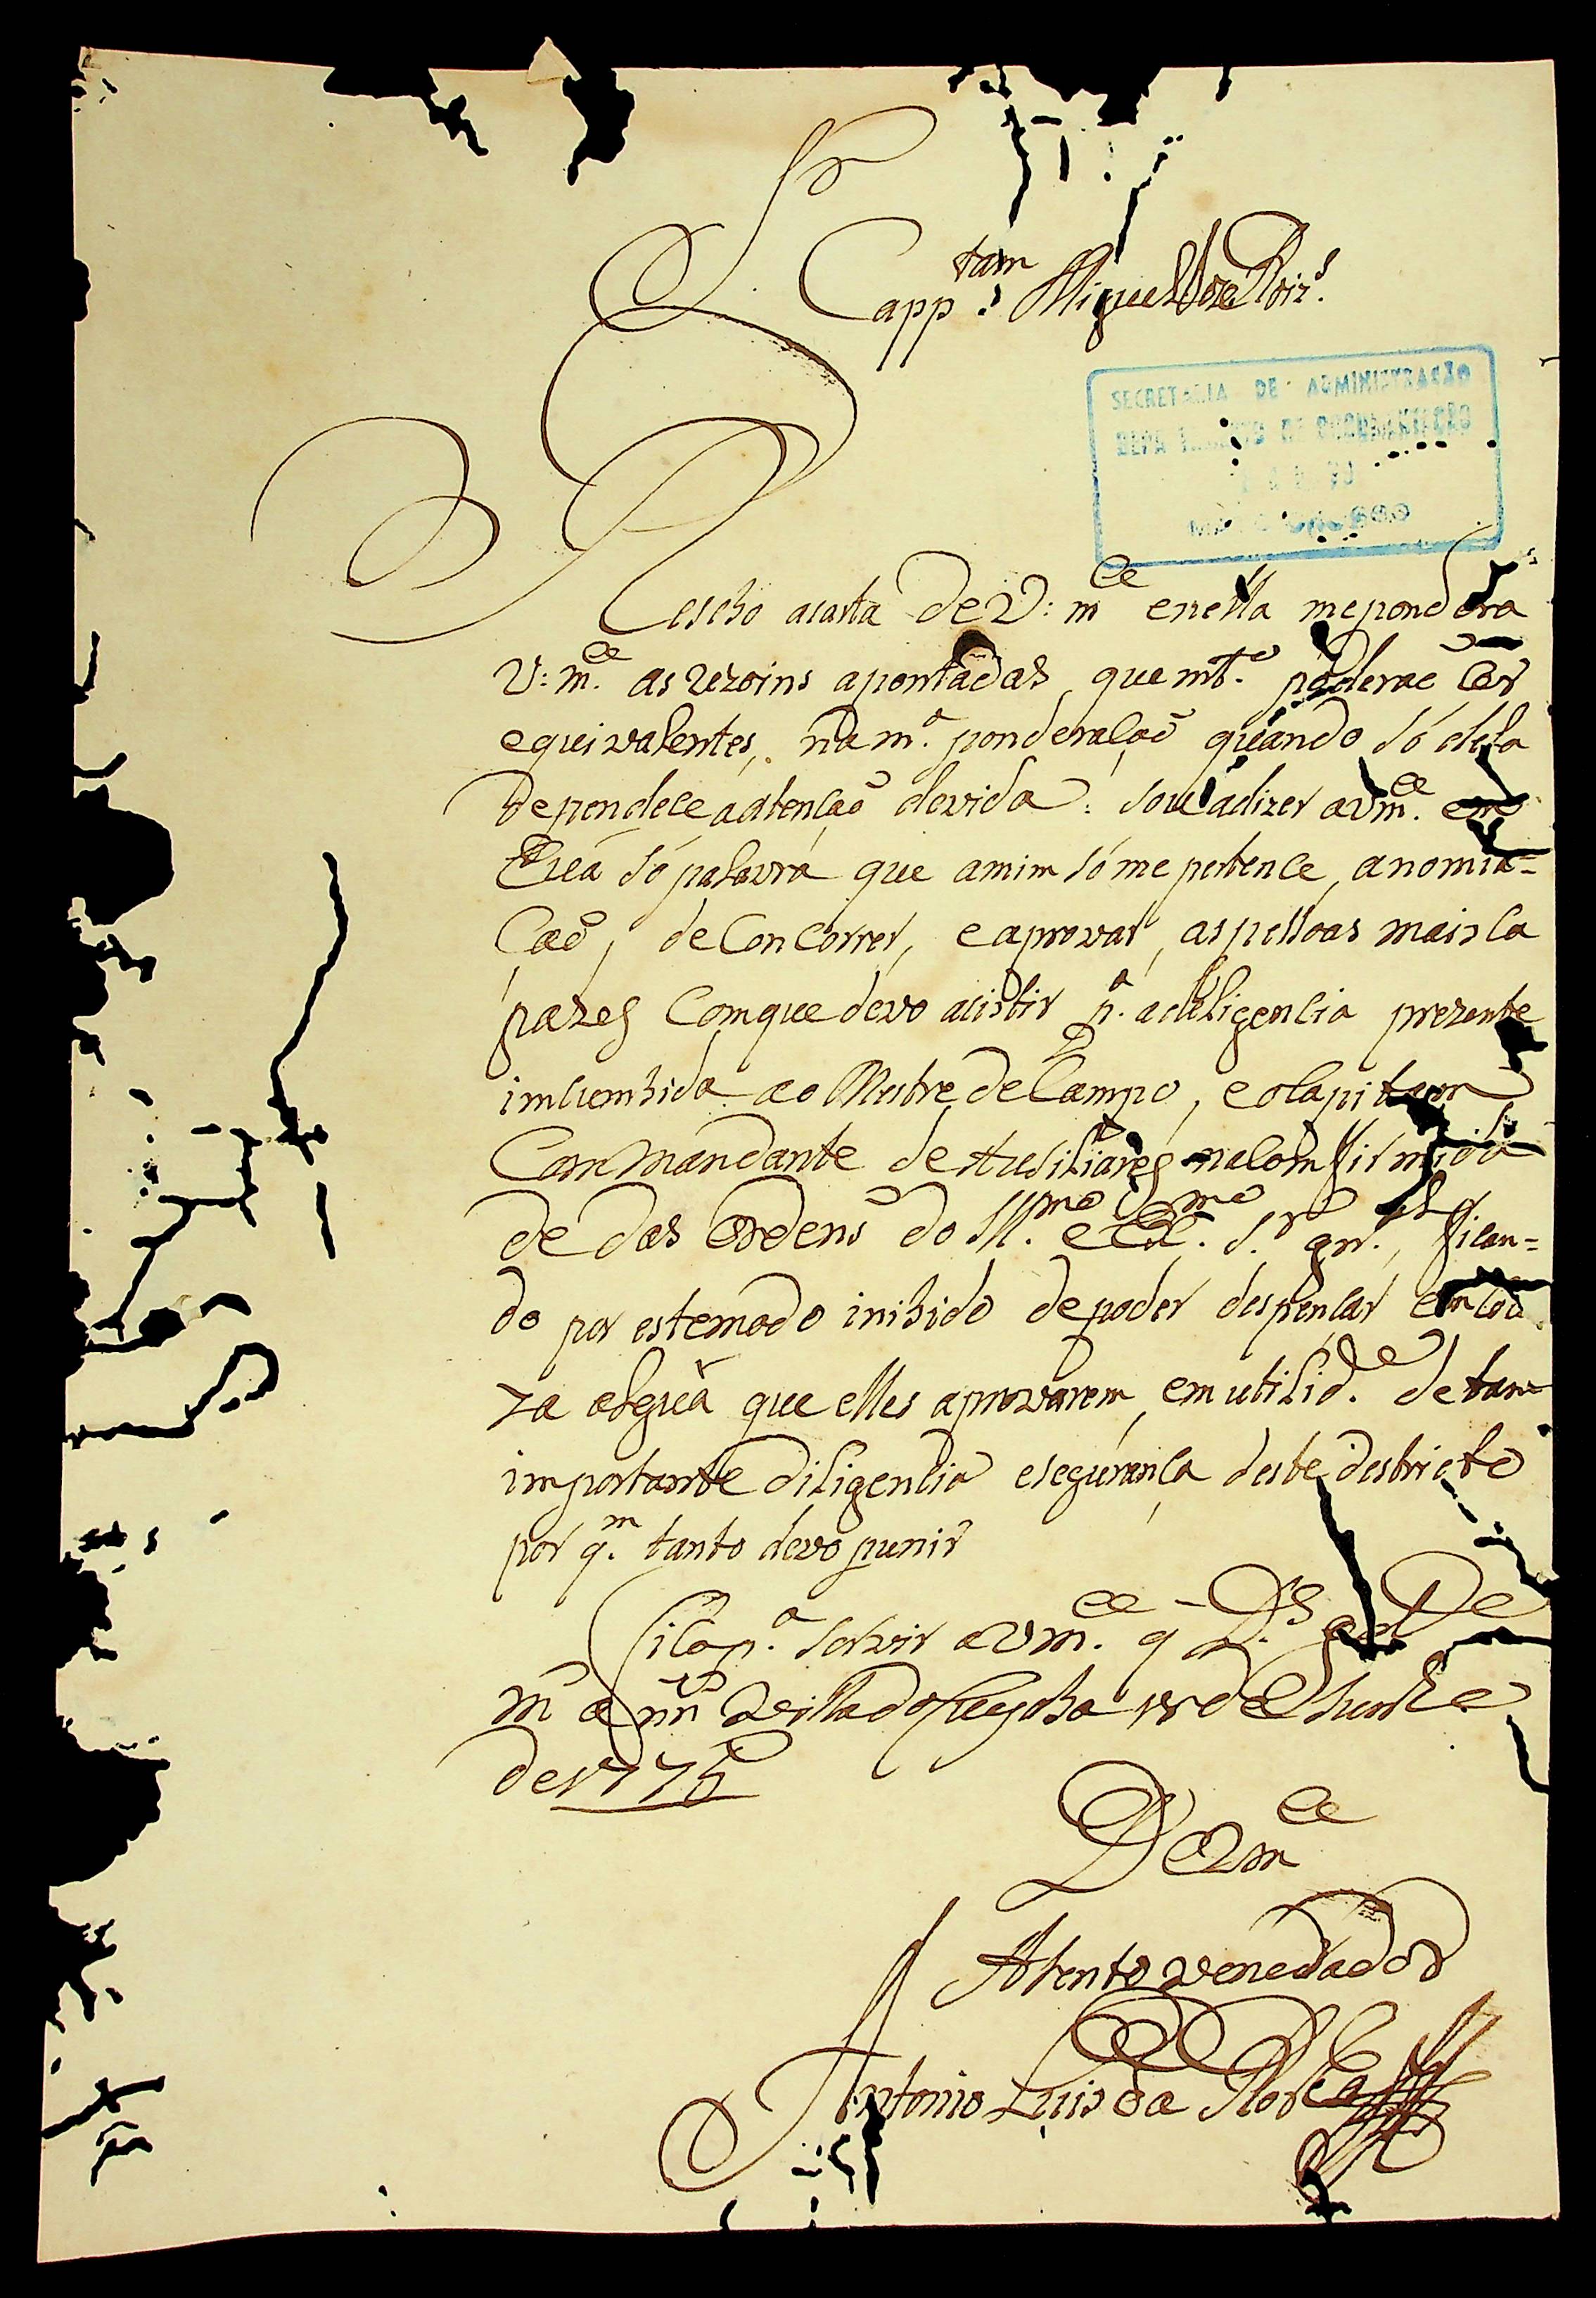 Sr
Capp.tam Miguel Joze Roiz.s
SECRETARIA DE ADMINISTRAÇÃO
DE DOCUMENTAÇÃO
MATO GROSSO
Resebo acarta de V: m.ce enella mepondera
V: m.ce as rezoins apontadas, que mt.o poderaõ ser
equivalentes, na m.a ponderaçaõ quando só dela
dependece aatençaõ devida: vou adizer avm.ce em
huã só palavra que amim só me pertence, anomia=
çaõ, de Concorrer, e aprovar, as pessoas mais ca
pazes Comque devo acistir p.a adeligencia prezente
imcumbida ao Mestre de Campo, e ocapitam
Commandante de Ausiliares naComfirmida
de das Ordens do Ill.mo e Ex.mo S.r gn.l, fican=
do por estemodo inibido depoder despençar em cou
za alguã que elles aprovarem, em utilid.de de tam
importante diligencia eseguranca deste destricto
por q.m tanto devo punir
fico p.a servir avm.ce q D.s g.de
m. ann.s de Junho
de 1775
De Vm.ce
Atento venerador
Antonio Luis da Rocha